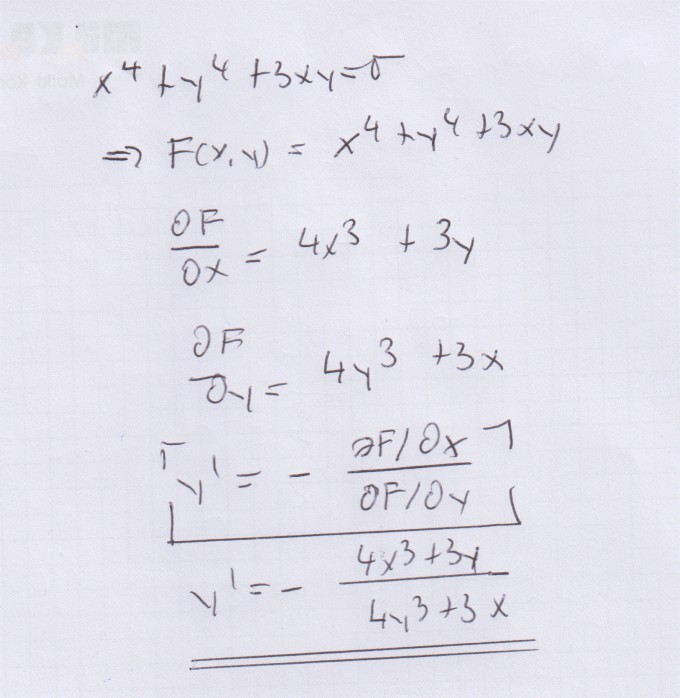 x⁴ + y⁴ + 3xy = 0
⇒ F(x,y) = x⁴ + y⁴ + 3xy
∂F/∂x = 4x³ + 3y
∂F/∂y = 4y³ + 3x
y' = - (∂F/∂x)/(∂F/∂y)
y' = - (4x³+3y)/(4y³+3x)